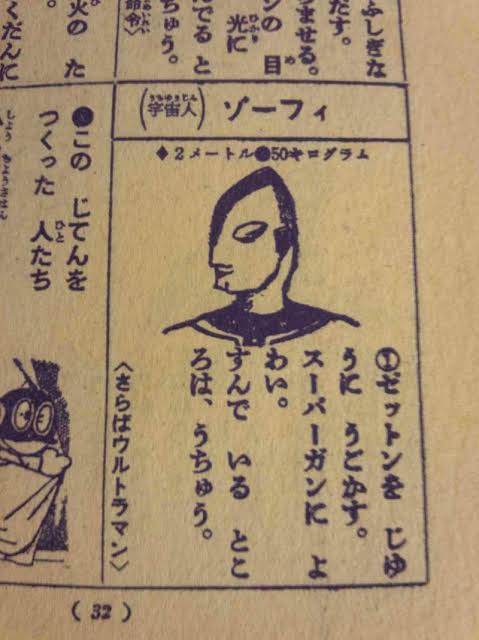 ふしぎな
だす。
ませる。
ンの 目
光に
でる と
ちゅう。
命令〉
火の た
くだんに
(宇宙人) ゾーフィ
うちゅうじん
◆2メートル●50キログラム
❶ゼットンを じゆ
うに うごかす。
スーパーガンに よ
わい。
すんで いる とこ
ろは、うちゅう。
〈さらばウルトラマン〉
●この じてんを
つくった 人たち
ひと
( 32 )